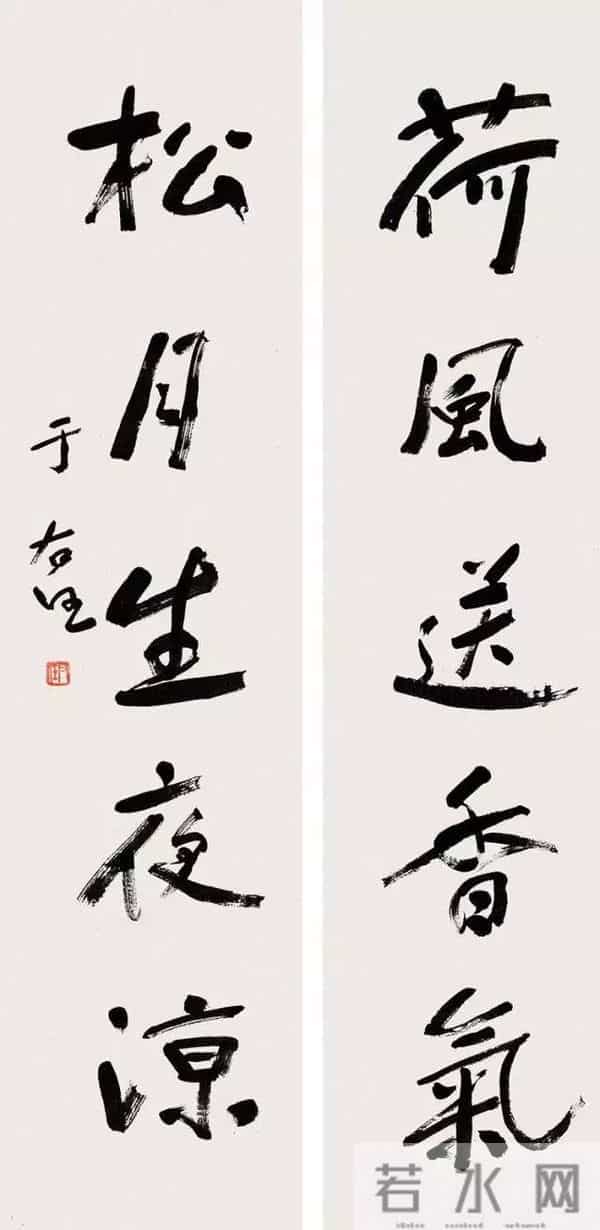 荷風送香氣
松月生夜涼
于右任
若水网